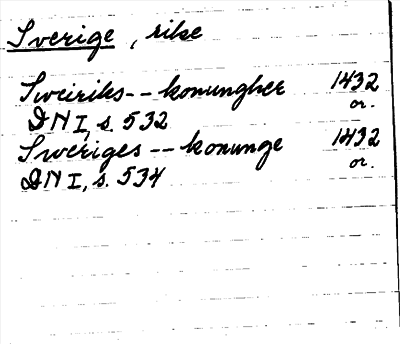 Sverige, rike
Sweiriks -- konungher 1432
or.
DN I, s. 532
Sweriges -- konunge 1432
or.
DN I, s. 534